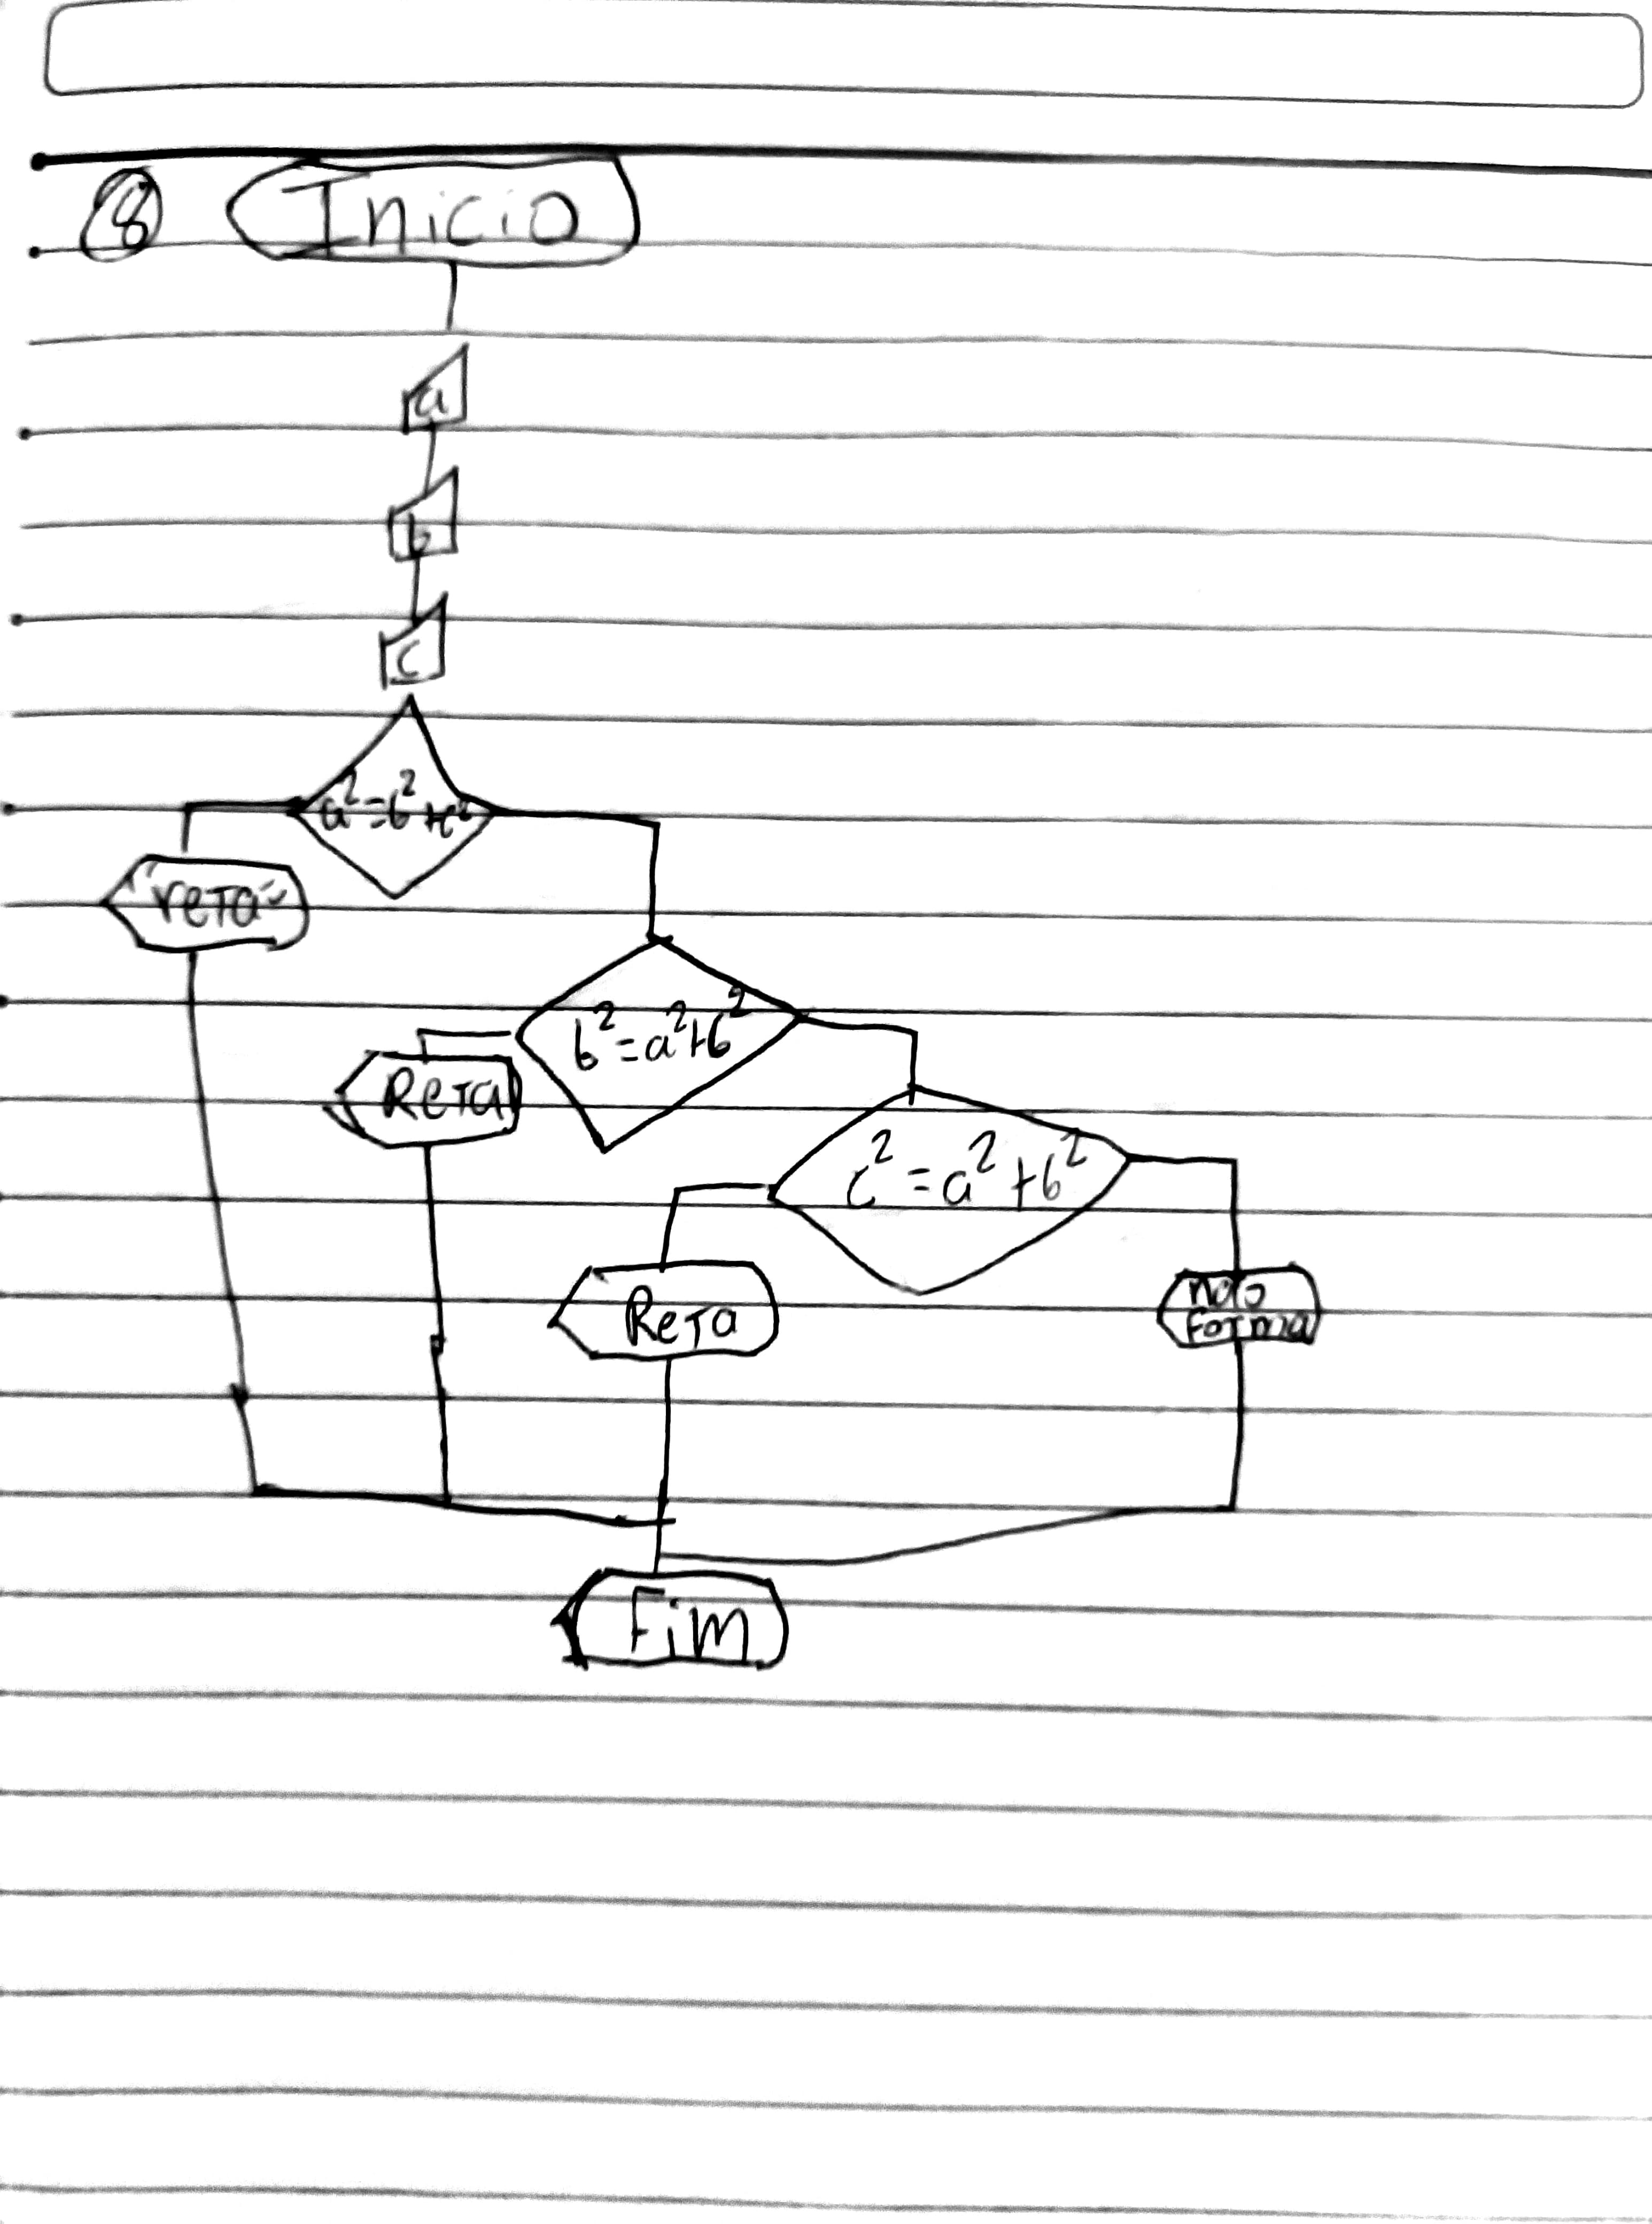 8 Inicio
a
b
c
a²=b²+c²
"reta"
b²=a²+b²
Reta
c²=a²+b²
Reta
não
forma
Fim